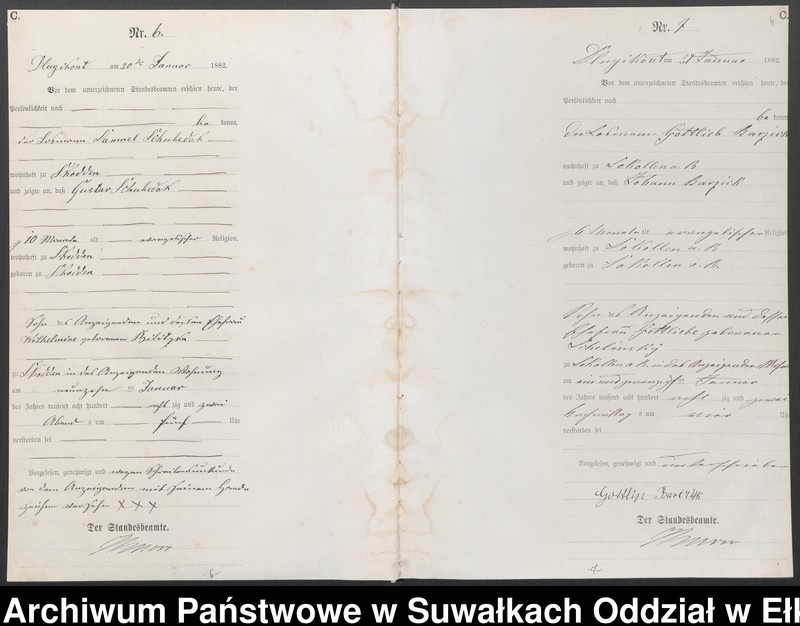 C.
Nr. 6.
Dlugikont am 20ten Januar 1882.
Vor dem unterzeichneten Standesbeamten erschien heute, der
Persönlichkeit nach
be kannt,
der Losmann Samuel
wohnhaft zu Skodden
und zeigte an, daß Gustav
10 Monate alt evangelischer Religion,
wohnhaft zu Skodden
geboren zu Skodden
Sohn des Anzeigenden und dessen Ehefrau
Wilhelmine geborenen
zu Skodden in des Anzeigenden Wohnung
am neunzehn ten Januar
des Jahres tausend acht hundert acht zig und zwei
Abend s um fünf Uhr
verstorben sei
Vorgelesen, genehmigt und wegen Schreibensunkunde
von dem Anzeigenden mit seinem Hand
zeichen versehen XXX
Der Standesbeamte.
C.
4
Nr. 7
Dlugikont am Januar 1882.
Vor dem unterzeichneten Standesbeamten erschien heute, der
Persönlichkeit nach
be kannt,
der Losmann Gottlieb Barzick
wohnhaft zu Sokollen a. B.
und zeigte an, daß Johann Barzick
6 Monate alt evangelischer Religion
wohnhaft zu Sokollen a. B.
geboren zu Sokollen a. B.
Sohn des Anzeigenden und dessen
Ehefrau Gottliebe geborenen
zu Sokollen a. B. in des Anzeigenden
am ein und zwanzigsten Januar
des Jahres tausend acht hundert acht zig und zwei
Nachmittag s um vier Uhr
verstorben sei
Vorgelesen, genehmigt und unterschrieben
Gottlip
Der Standesbeamte.
Archiwum Państwowe w Suwałkach Oddział w Ełk